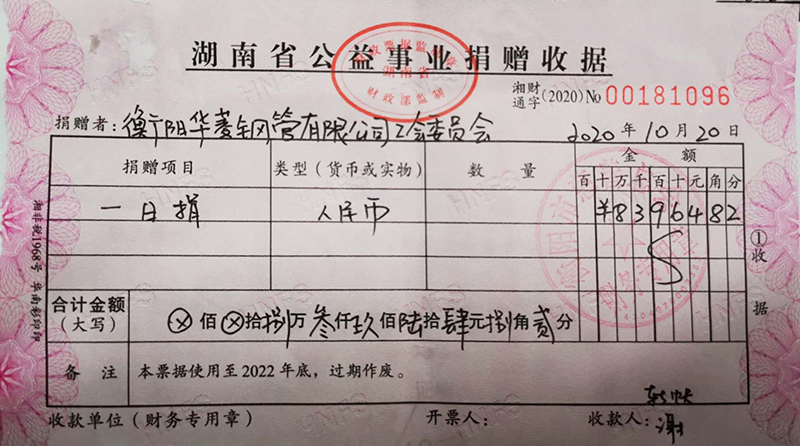 湖南省公益事业捐赠收据
湖南省
财政部监制
湘财通字(2020) No 00181096
捐赠者：衡阳华菱钢管有限公司工会委员会 2020年10月20日
捐赠项目 类型（货币或实物） 数量 金额
百十万千百十元角分
一日捐 人民币 ¥8396482
合计金额（大写） ⊗佰⊗拾捌万叁仟玖佰陆拾肆元捌角贰分
备注 本票据使用至2022年底，过期作废。
转帐
收款单位（财务专用章） 开票人： 收款人：谢
①收据
湘非税1968号 华南彩印印